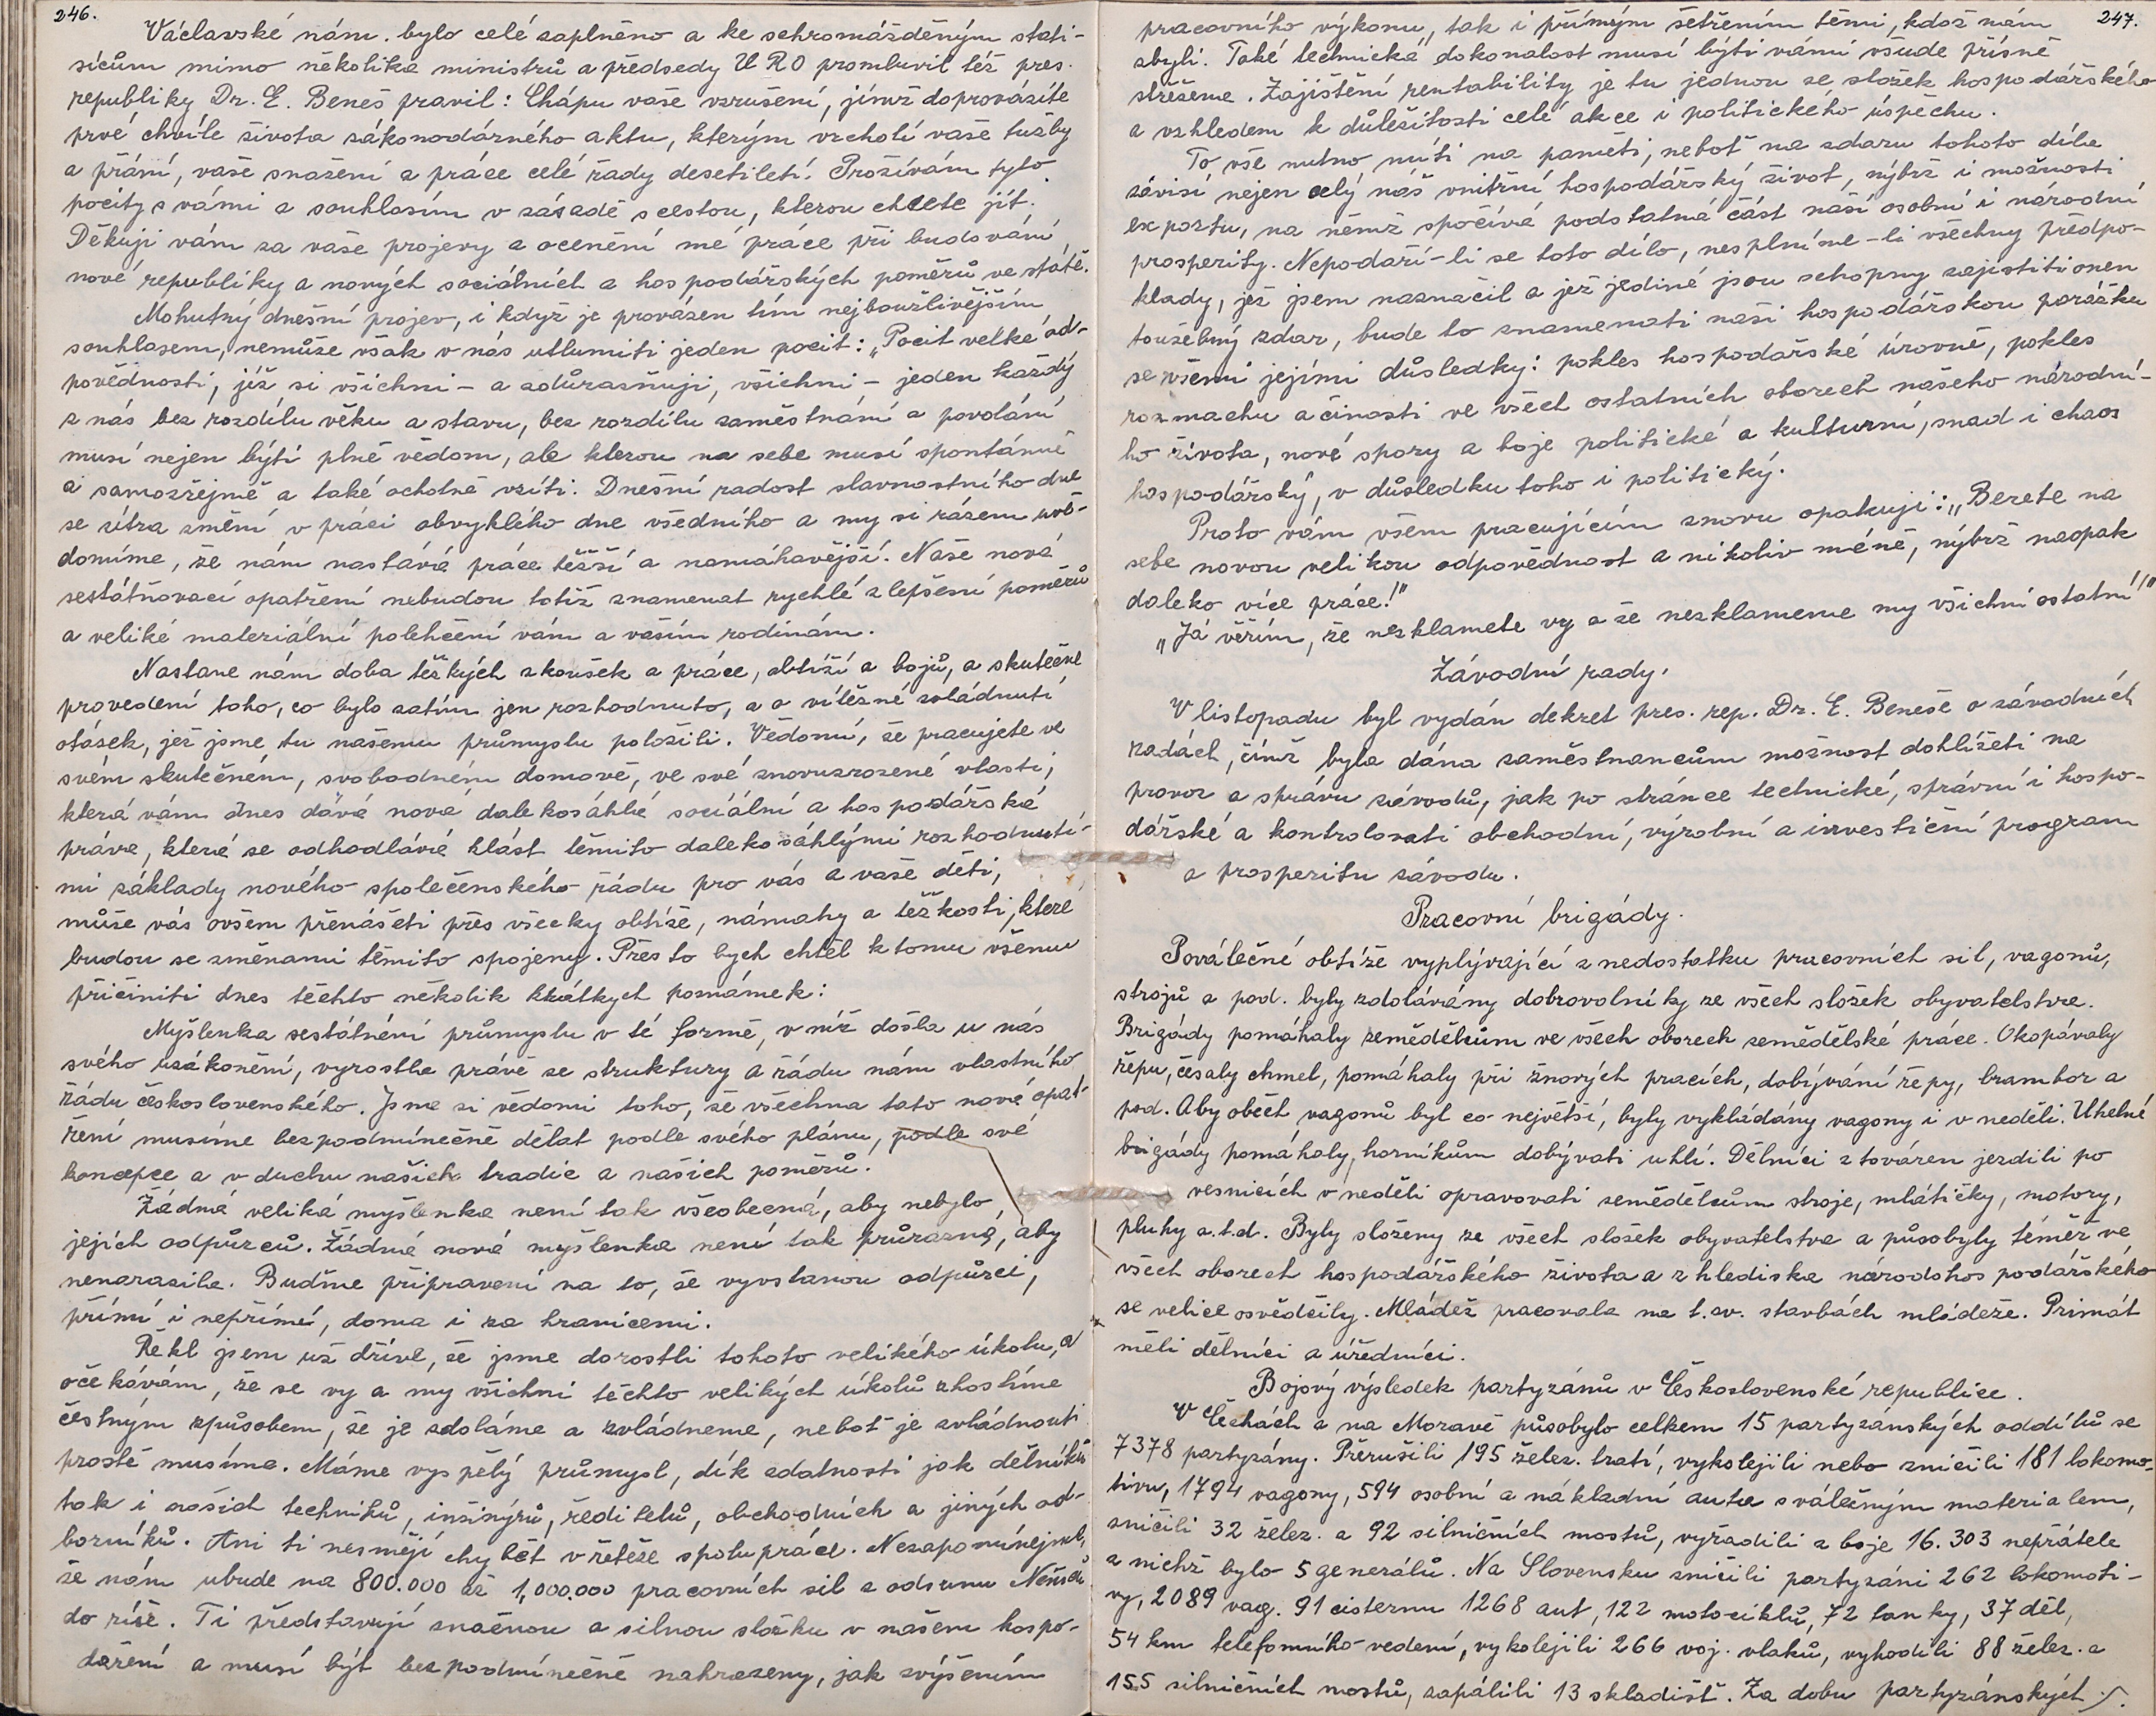 246.
Václavské nám. bylo celé zaplněno a ke schromážděným stati-
sícům mimo několika ministrů a předsedy U R O promluvil též pres.
republiky Dr. E. Beneš pravil: Chápu vaše vzrušení, jímž doprovázíte
prvé chvíle života zákonodárného aktu, kterým vrcholí vaše tužby
a přání, vaše snažení a práce celé řady desetiletí. Prožívám tyto
pocity s vámi a souhlasím v zásadě s cestou, kterou chcete jít.
Děkuji vám za vaše projevy a ocenění mé práce při budování
nové republiky a nových sociálních a hospodářských poměrů ve státě.
Mohutný dnešní projev, i když je provázen tím nejbouřlivějším
souhlasem, nemůže však v nás utlumiti jeden pocit: „Pocit velké od-
povědnosti, jíž si všichni - a zdůrazňuji, všichni - jeden každý
z nás bez rozdílu věku a stavu, bez rozdílu zaměstnání a povolání
musí nejen býti plně vědom, ale kterou na sebe musí spontánně
a samozřejmě a také ochotně vzíti. Dnešní radost slavnostního dne
se zítra změní v práci obvyklého dne všedního a my si rázem uvě-
domíme, že nám nastává práce těžší a namáhavější. Naše nová
sestátňovací opatření nebudou totiž znamenat rychlé zlepšení poměrů
a veliké materiální polehčení vám a vaším rodinám.
Nastane nám doba těžkých zkoušek a práce, obtíží a bojů, a skutečné
provedení toho, co bylo zatím jen rozhodnuto, a o vítězné zvládnutí
otázek, jež jsme tu našemu průmyslu položili. Vědomí, že pracujete ve
svém skutečném, svobodném domově, ve své znovuzrozené vlasti,
která vám dnes dává nová dalekosáhlé sociální a hospodářská
práva, které se odhodlává klást těmito dalekosáhlými rozhodnutí-
mi základy nového společenského řádu pro vás a vaše děti,
může vás ovšem přenášeti přes všecky obtíže, námahy a těžkosti, které
budou se změnami těmito spojeny. Přes to bych chtěl k tomu všemu
přičiniti dnes těchto několik krátkych poznámek:
Myšlenka sestátnění průmyslu v té formě, v níž došla u nás
svého uzákonění, vyrostla právě ze struktury a řádu nám vlastního
řádu československého. Jsme si vědomi toho, že všechna tato nová opat-
ření musíme bezpodmínečně dělat podle svého plánu, podle své
koncepce a v duchu našich tradic a našich poměrů.
Žádná veliká myšlenka není tak všeobecná, aby nebylo
jejich odpůrců. Žádná nová myšlenka není tak průrazná, aby
nenarazila. Buďme připraveni na to, že vyvstanou odpůrci,
přímí i nepřímí, doma i za hranicemi.
Řekl jsem už dříve, že jsme dorostli tohoto velikého úkolu, a
očekávám, že se vy a my všichni těchto velikých úkolů zhostíme
čestným způsobem, že je zdoláme a zvládneme, neboť je zvládnouti
prostě musíme. Máme vyspělý průmysl, dík zdatnosti jak dělníků
tak i našich techniků, inžinýrů, ředitelů, obchodních a jiných od-
borníků. Ani ti nesmějí chybět v řetěze spolupráce. Nezapomínejme,
že nám ubude na 800.000 až 1,000.000 pracovních sil z odsunu Němců
do říše. Ti představují značnou a silnou složku v našem hospo-
daření a musí být bezpodmínečně nahrazeny, jak zvýšením
247.
pracovního výkonu, tak i přímým šetřením těmi, kdož nám
zbyli. Také technická dokonalost musí býti námi všude přísně
střežena. Zajištění rentability je tu jednou ze složek hospodářského
a vzhledem k důležitosti celé akce i politického úspěchu.
To vše nutno míti na paměti, neboť na zdaru tohoto díla
závisí nejen celý náš vnitřní hospodářský život, nýbrž i možnosti
exportu, na němž spočívá podstatná část naší osobní i národní
prosperity. Nepodaří-li se toto dílo, nesplníme-li všechny předpo-
klady, jež jsem naznačil a jež jedině jsou schopny zajistiti onen
toužebný zdar, bude to znamenati naši hospodářskou porážku
se všemi jejími důsledky: pokles hospodářské úrovně, pokles
rozmachu a činosti ve všech ostatních oborech našeho národní-
ho života, nové spory a boje politické a kulturní, snad i chaos
hospodářský, v důsledku toho i politický.
Proto vám všem pracujícím znovu opakuji: „Berete na
sebe novou velikou odpovědnost a nikoliv méně, nýbrž naopak
daleko více práce!"
„Já věřím, že nezklamete vy a že nezklameme my všichni ostatní!"
Závodní rady.
V listopadu byl vydán dekret pres. rep. Dr. E. Beneše o závodních
radách, čímž byla dána zaměstnancům možnost dohlížeti na
provoz a správu závodů, jak po stránce technické, správní i hospo-
dářské a kontrolovati obchodní, výrobní a investiční program
a prosperitu závodu.
Pracovní brigády.
Poválečné obtíže vyplývající z nedostatku pracovních sil, vagonů,
strojů a pod. byly zdolávány dobrovolníky ze všech složek obyvatelstva.
Brigády pomáhaly zemědělcům ve všech oborech zemědělské práce. Okopávaly
řepu, česaly chmel, pomáhaly při žnových pracích, dobývání řepy, brambor a
pod. Aby oběh vagonů byl co největší, byly vykládány vagony i v neděli. Uhelné
brigády pomáhaly, horníkům dobývati uhlí. Dělníci z továren jezdili po
vesnicích v neděli opravovati zemědělcům stroje, mlátičky, motory,
pluhy a.t.d. Byly složeny ze všech složek obyvatelstva a působyly téměř ve
všech oborech hospodářského života a z hlediska národohospodářského
se velice osvědčily. Mládež pracovala na t. zv. stavbách mládeže. Primát
měli dělníci a úředníci.
Bojový výsledek partyzánů v Československé republice.
V Čechách a na Moravě působylo celkem 15 partyzánských oddílů se
7378 partyzány. Přerušili 195 želez. tratí, vykolejili nebo zničili 181 lokomo-
tivu, 1794 vagony, 594 osobní a nákladní auta s válečným materialem,
zničili 32 želez. a 92 silničních mostů, vyřadili z boje 16.303 nepřátele
z nichž bylo 5 generálů. Na Slovensku zničili partyzáni 262 lokomoti-
vy, 2089 vag. 91 cisternu 1268 aut, 122 motociklů, 72 tanky, 37 děl,
54 km telefonního vedení, vykolejili 266 voj. vlaků, vyhodili 88 želez. a
155 silničních mostů, zapálili 13 skladišť. Za dobu partyzánských